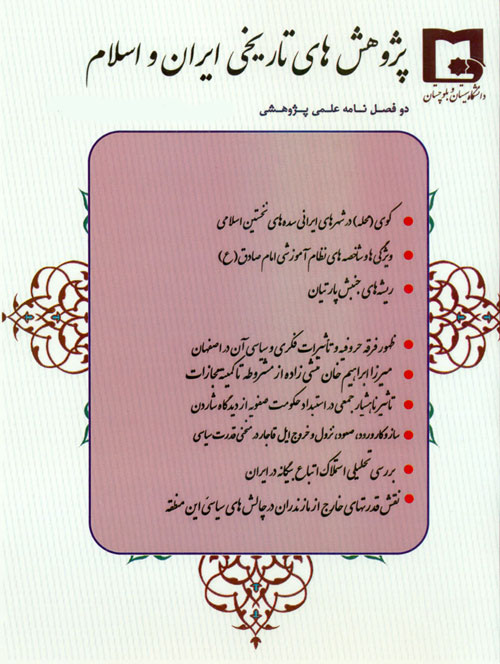 پژوهش های تاریخی ایران و اسلام
دانشگاه سیستان و بلوچستان
دو فصل نامه علمی پژوهشی
کوی (محله) در شهرهای ایرانی سده های نخستین اسلامی
ویژگی ها و شاخصه های نظام آموزشی امام صادق (ع)
ریشه های جنبش پارتیان
ظهور فرقه حروفیه و تأثیرات فکری و سیاسی آن در اصفهان
میرزا ابراهیم خان منشی زاده از مشروطه تا کمیته مجازات
تأثیر ناهشیار جمعی در استبداد حکومت صفویه از دیدگاه شاردن
ساز و کار ورود، صعود، نزول و خروج ایل قاجار در منحنی قدرت سیاسی
بررسی تحلیلی استملاک اتباع بیگانه در ایران
نقش قدرتهای خارج از مازندران در چالش های سیاسی این منطقه